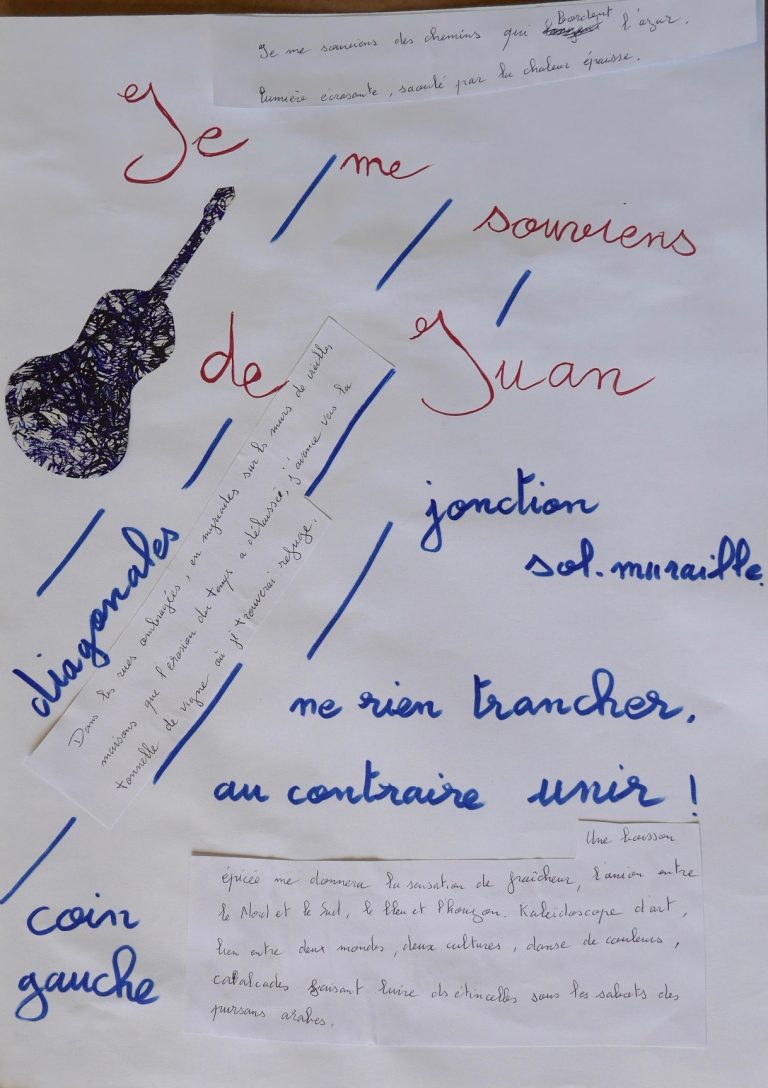 Je me souviens des chemins qui Bordent l'azur.
lumière écrasante, saoulé par la chaleur épaisse.
Je
me
souviens
de Juan
Dans les rues ombragées, en myriades sur les murs de vieilles
maisons que l'érosion du temps a délaissée, j'avance vers la
tonnelle de vigne où j'i trouverai refuge.
diagonales
jonction
sol. muraille.
ne rien trancher.
au contraire unir !
coin
gauche
Une boisson
épicée me donnera la sensation de fraîcheur, l'union entre
le Nord et le Sud, le bleu et l'horizon. Kaleïdoscope d'art,
lien entre deux mondes, deux cultures, danse de couleurs,
cavalcades faisant luire ds étincelles sous les sabots des
pursans arabes.